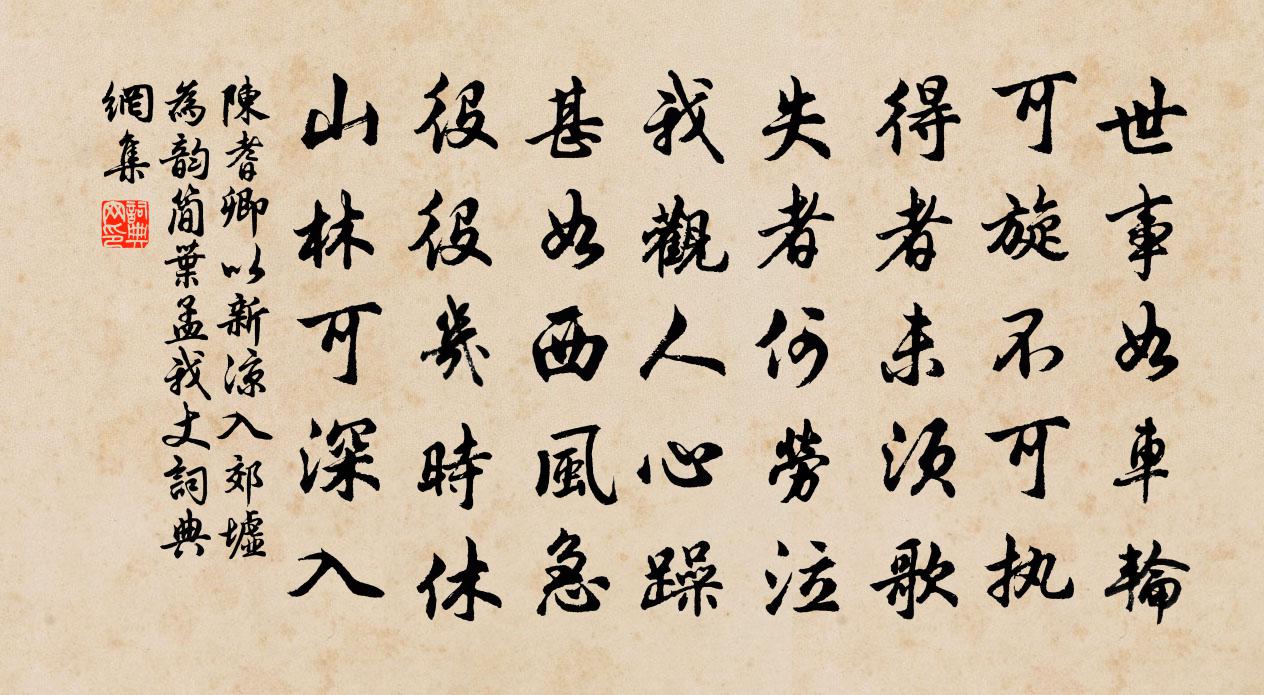 世事如車輪
可旋不可执
得者未須歌
失者何勞泣
我觀人心躁
甚如西風急
役役幾時休
山林可深入
陳耆卿以新涼入郊墟
為韵簡葉孟我丈詞典
網集
詞典
网印